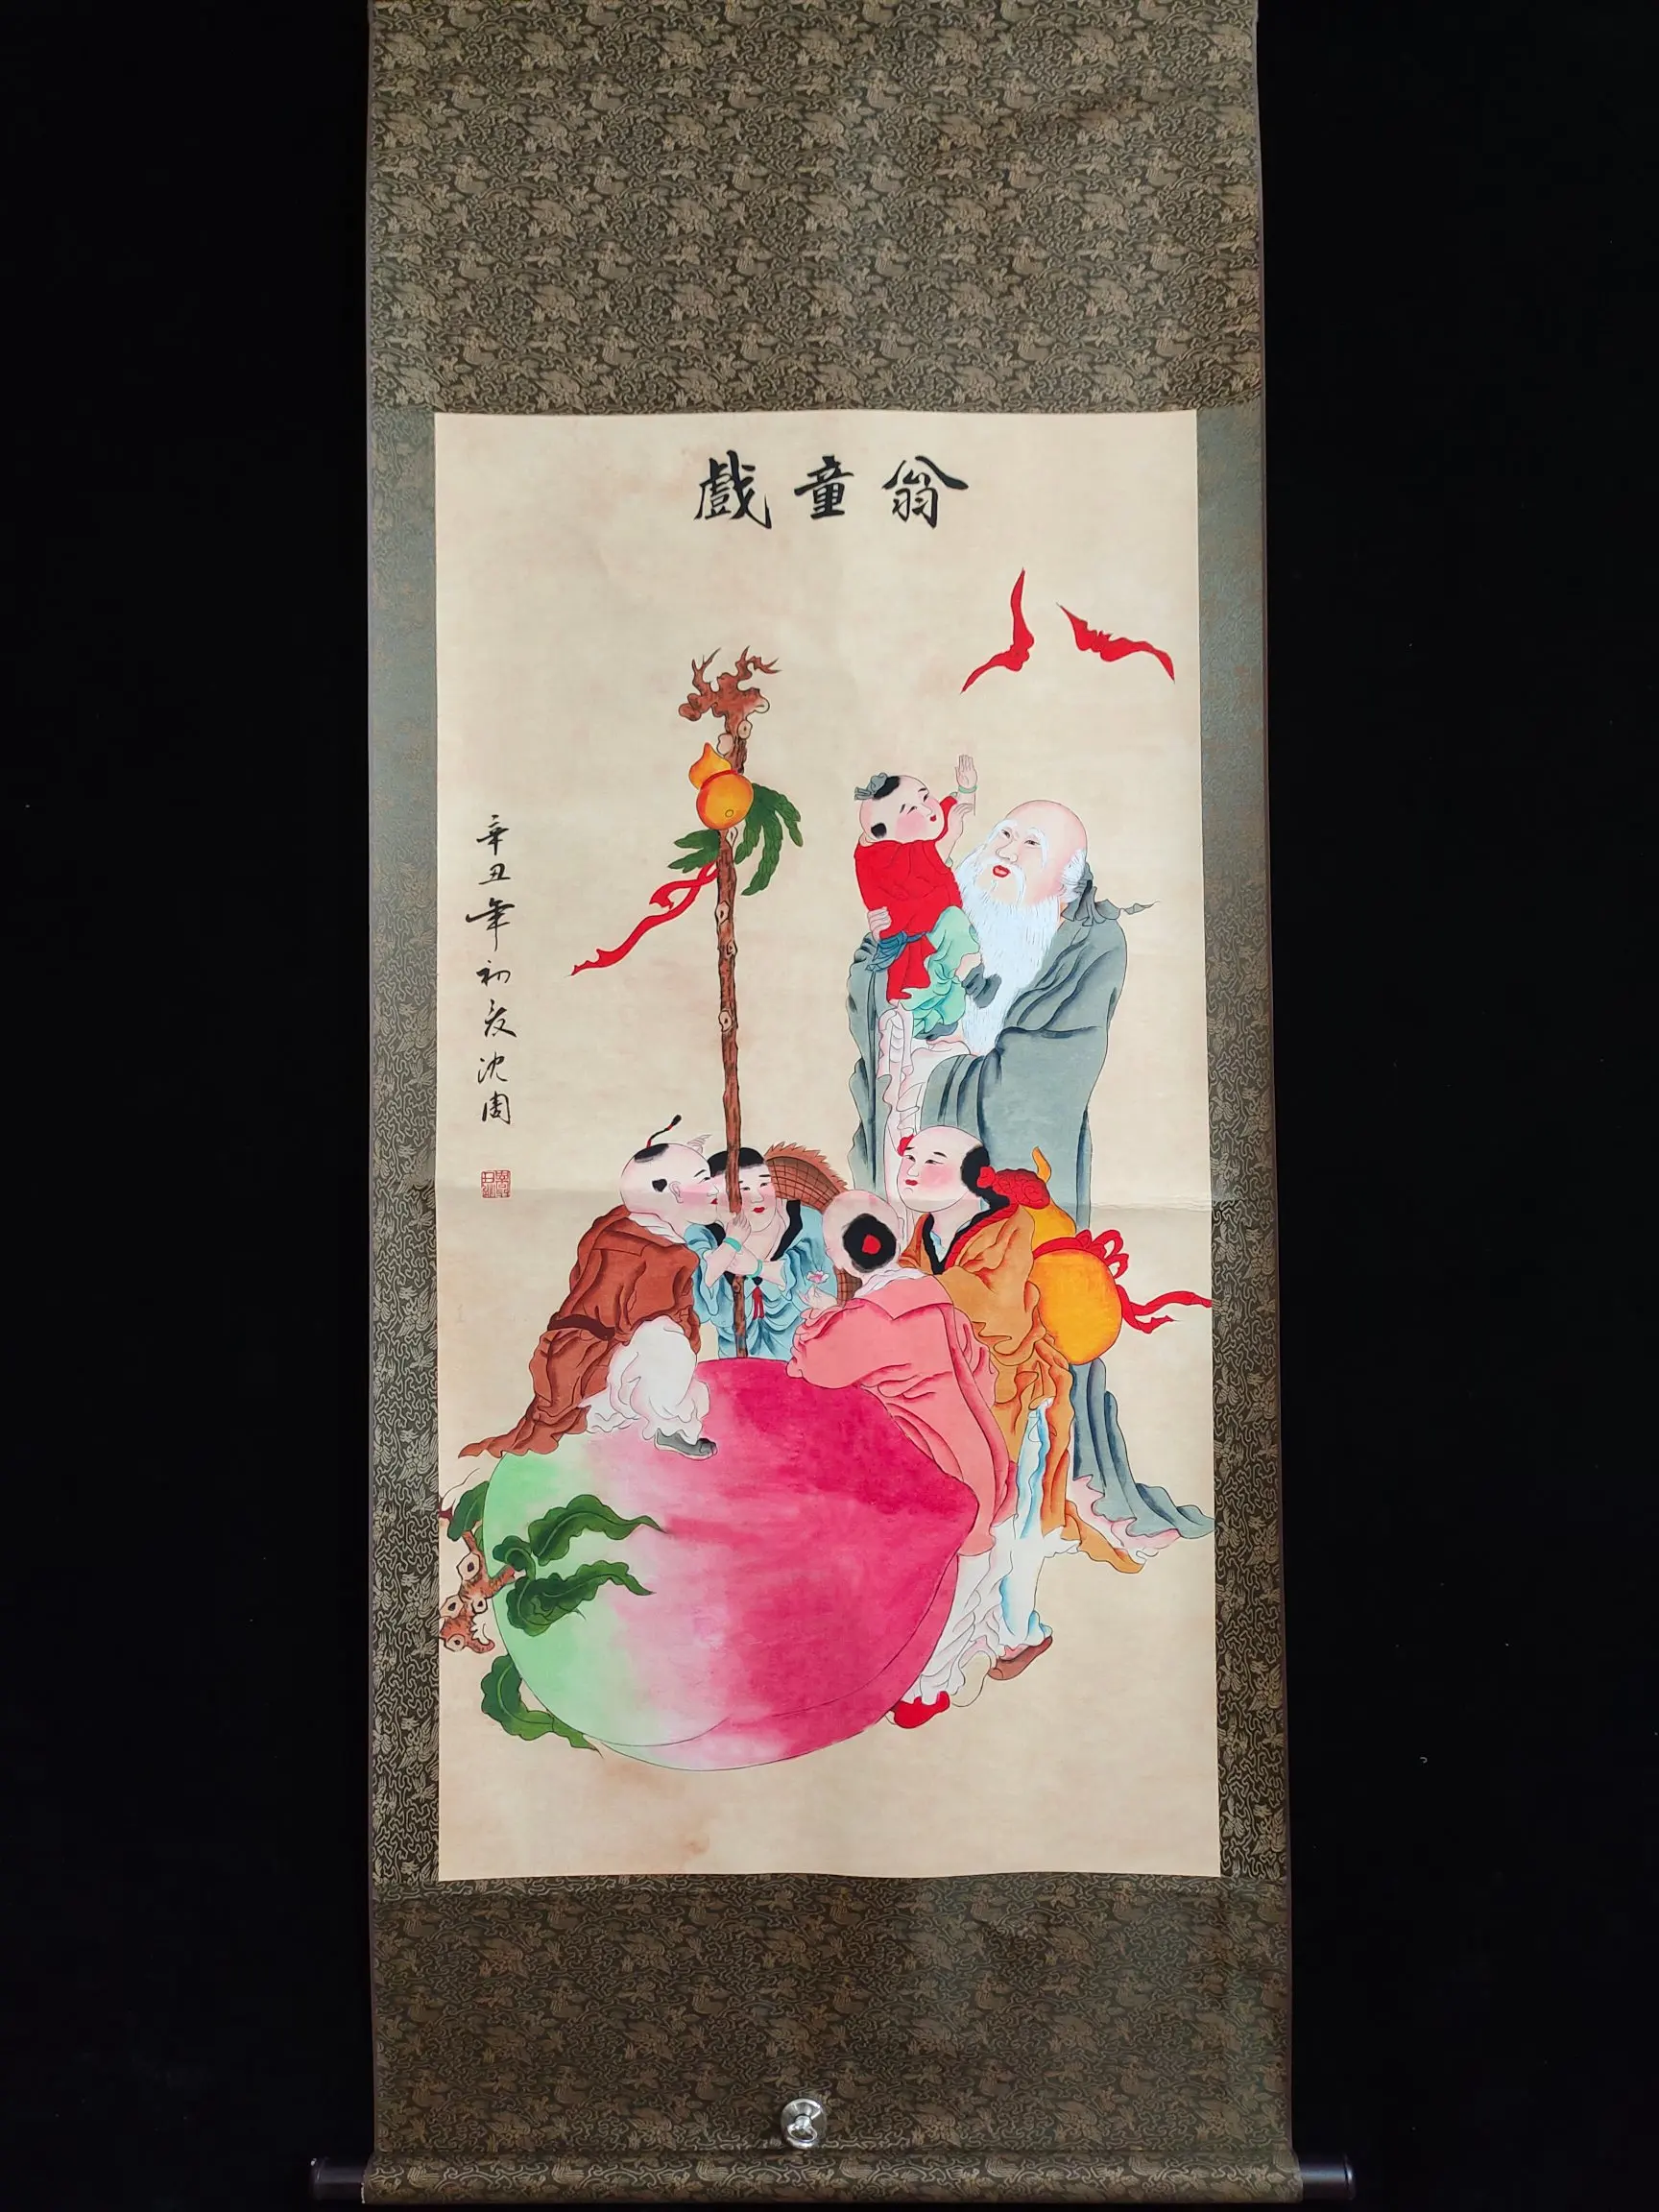 翁童戲
辛丑年初夏沈周